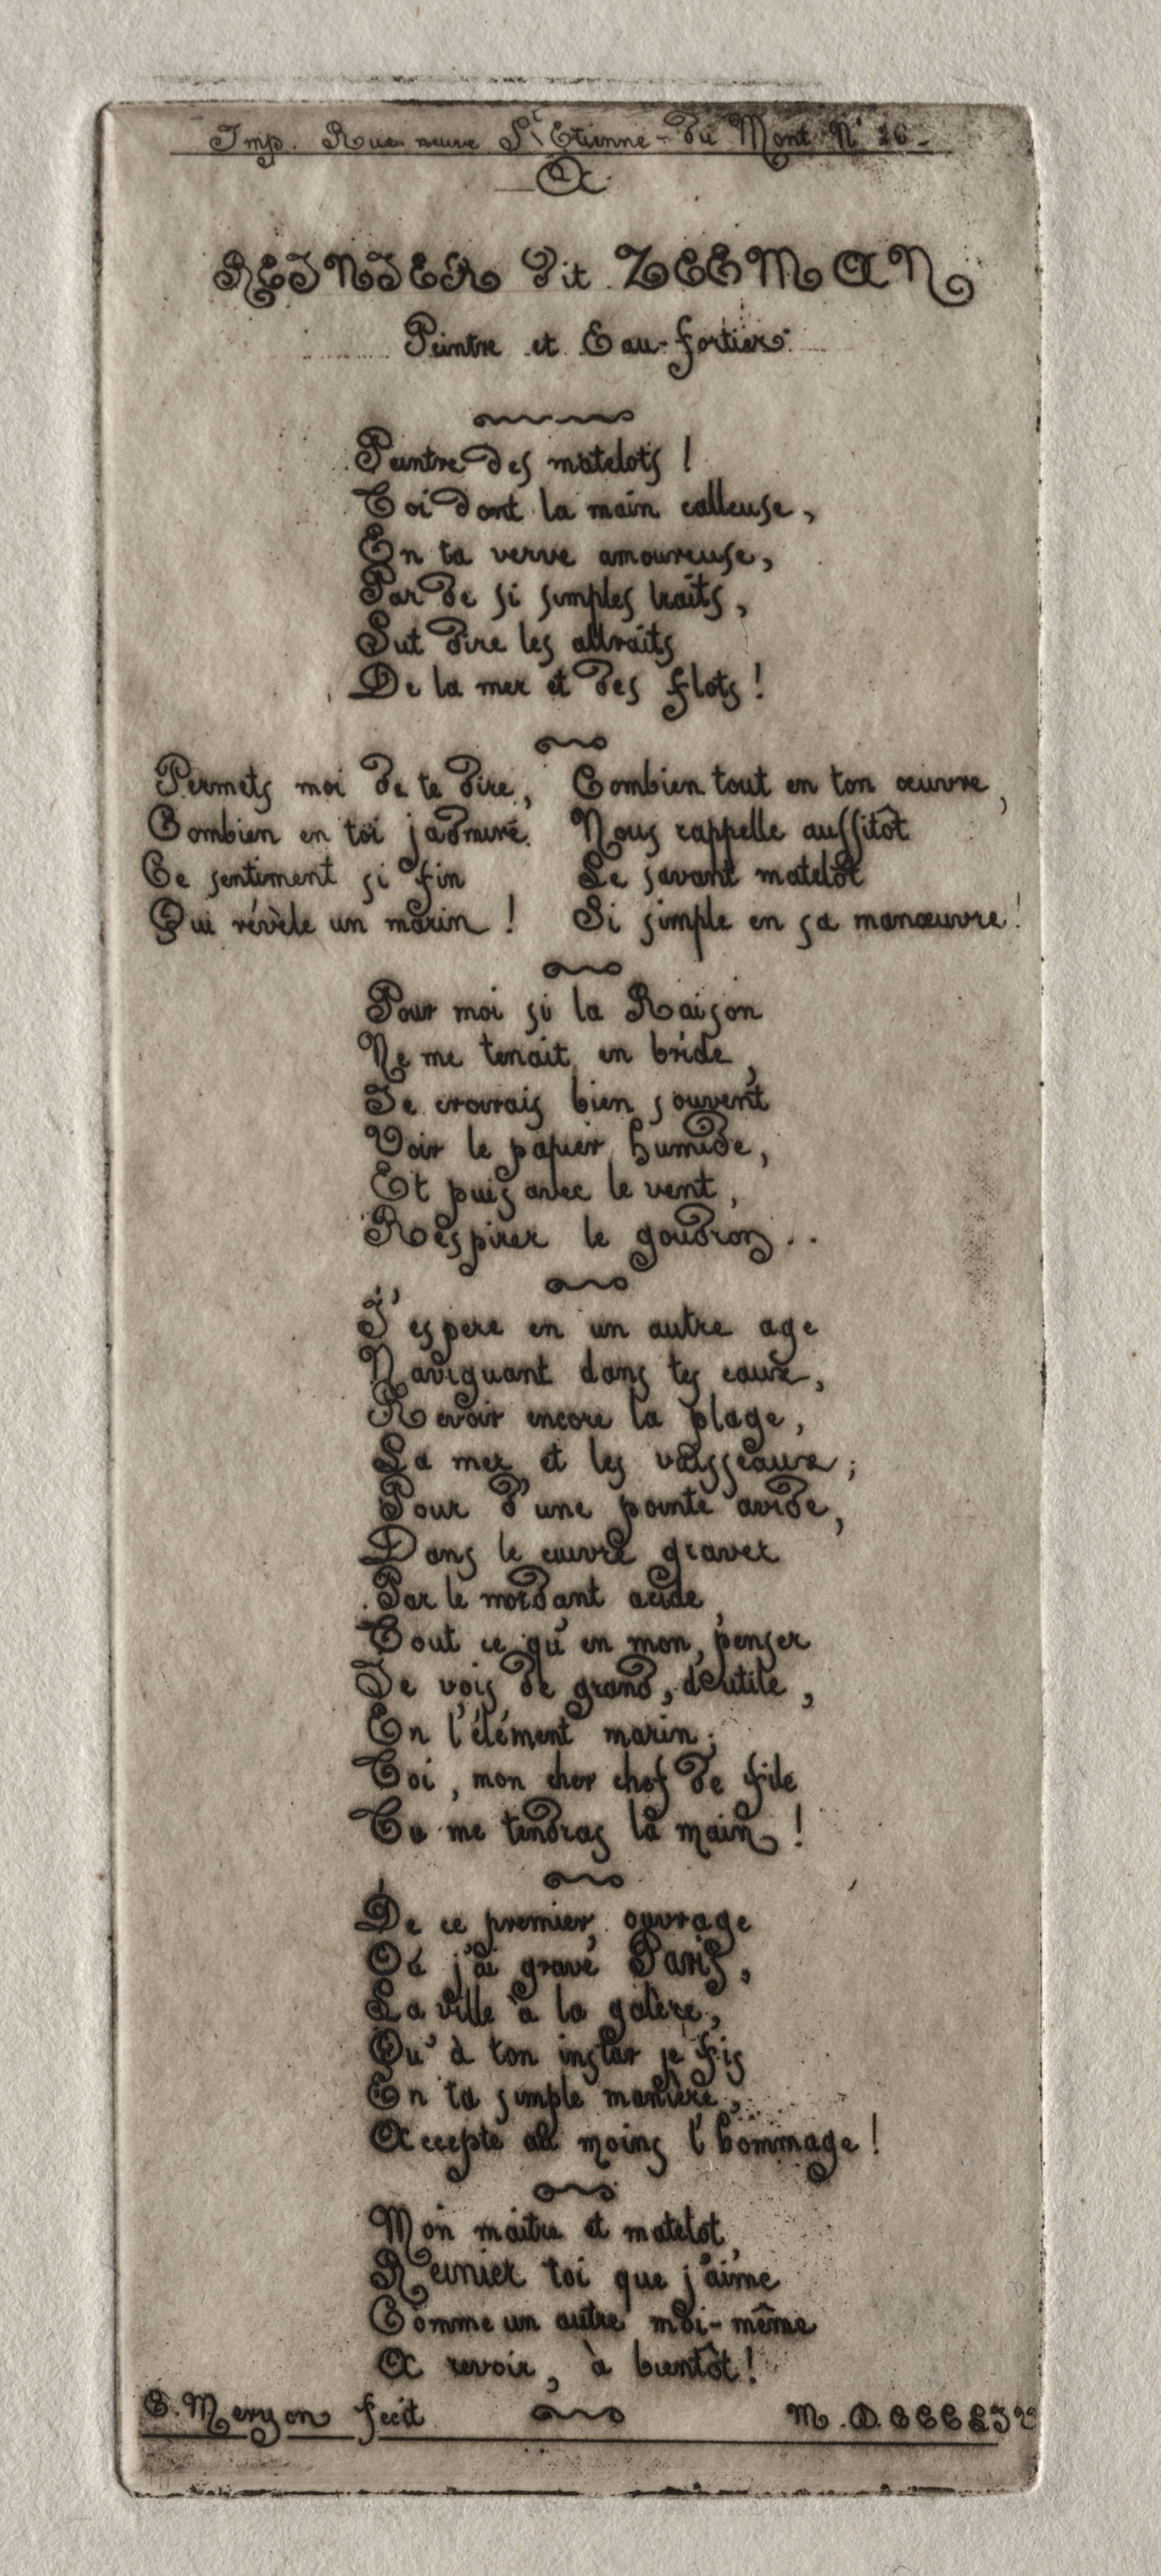 Imp. Rue neuve St Etienne-du Mont No 26-
A
REINIER dit ZEEMAN
Peintre et Eau-fortier.
Peintre des matelots !
Toi dont la main calleuse,
En ta verve amoureuse,
Par de si simples traits,
Sut dire les attraits
De la mer et des flots !
Permets moi de te dire,
Combien en toi j'admire
Ce sentiment si fin
Qui révèle un marin !
Combien tout en ton œuvre,
Nous rappelle aussitôt
Le savant matelot
Si simple en sa manœuvre !
Pour moi si la Raison
Ne me tenait en bride,
Je croirais bien souvent
Voir le papier humide,
Et puis avec le vent,
Respirer le goudron..
J'espere en un autre age
Naviguant dans tes eaux,
Revoir encore la plage,
La mer et les vaisseaux ;
Pour d'une pointe avide,
Dans le cuivre graver
Par le mordant acide,
Tout ce qu'en mon penser
Je vois de grand, d'utile,
En l'élément marin ;
Toi, mon cher chef de file
Tu me tendras la main !
De ce premier ouvrage
Où j'ai gravé Paris,
La ville à la galère,
Qu'à ton instar je fis
En ta simple manière,
Accepte au moins l'hommage !
Mon maitre et matelot,
Reinier toi que j'aime
Comme un autre moi-même
A revoir, à bientôt !
C. Meryon fecit
M.D.CCCLIV